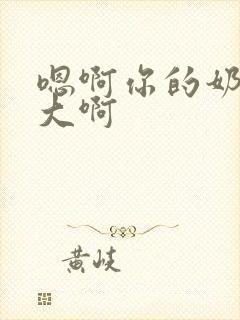 嗯啊你的奶
大啊
黄岐